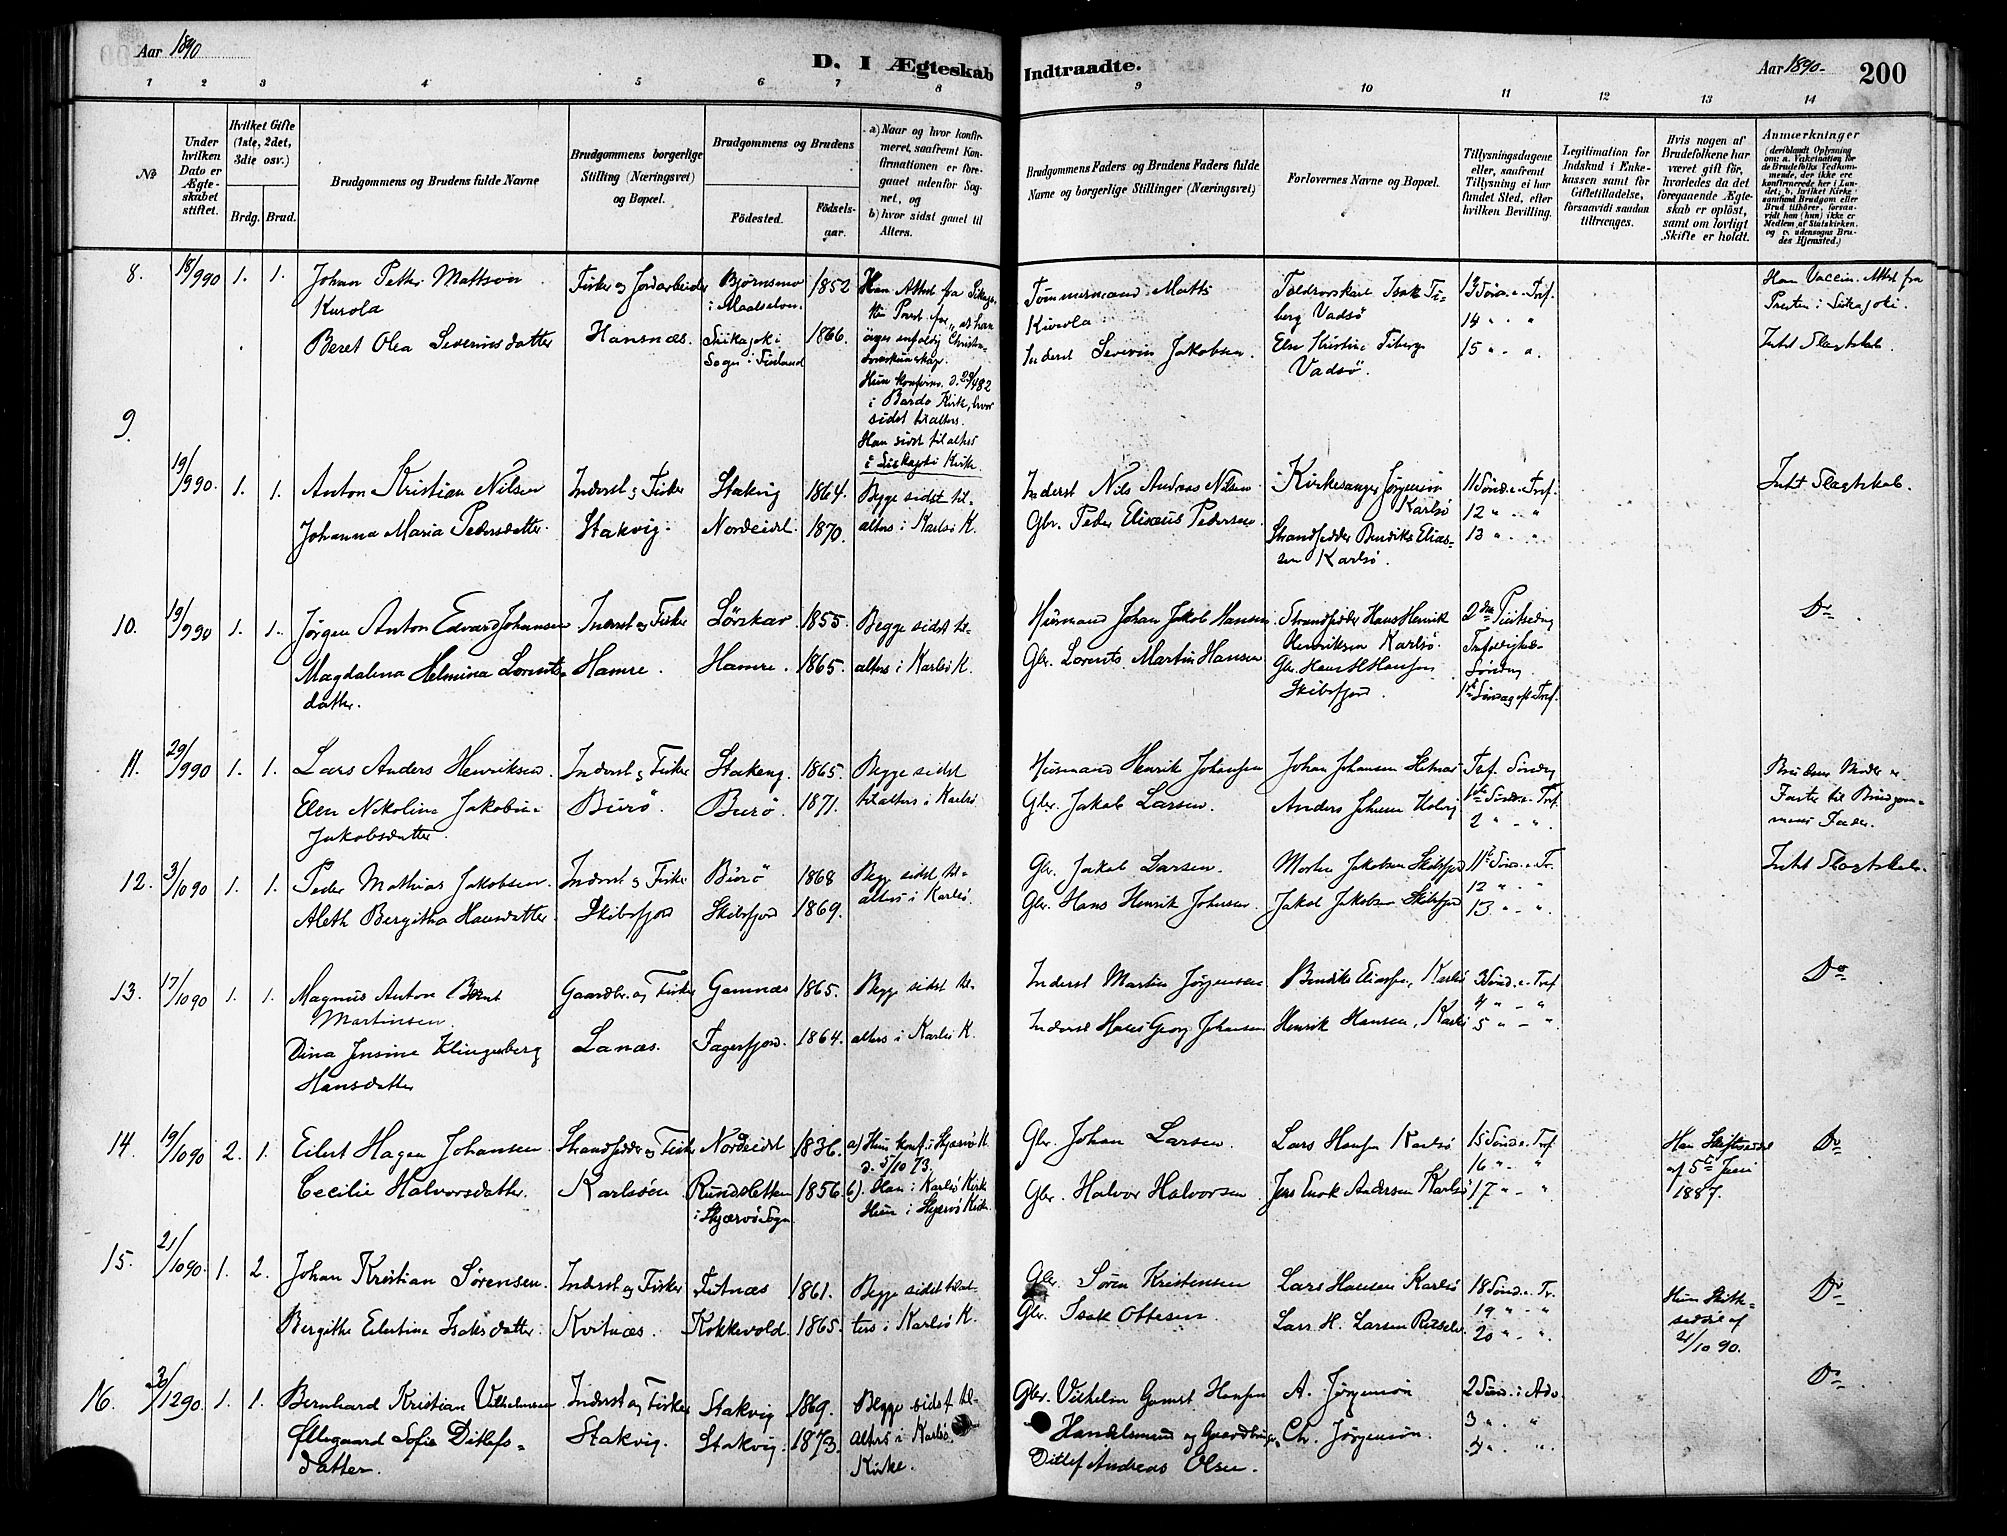 Aar 1890
D. I Ægteskab Indtraadte.
Aar 1890.
200
1 2 3 4 5 6 7 8 9 10 11 12 13 14
No
Under hvilken Dato er Ægteskabet stiftet.
Hvilket Gifte (1ste, 2det, 3die osv.)
Brdg. Brud.
Brudgommens og Brudens fulde Navne
Brudgommens borgerlige Stilling (Næringsvei) og Bopæl.
Brudgommens og Brudens
Födested.
Födselsaar.
a) Naar og hvor konfirmeret, saafremt Konfirmationen er foregaaet udenfor Sognet, og
b) hvor sidst gaaet til Alters.
Brudgommens Faders og Brudens Faders fulde Navne og borgerlige Stillinger (Næringsvei)
Forlovernes Navne og Bopæl.
Tillysningsdagene eller, saafremt Tillysning ei har fundet Sted, efter hvilken Bevilling.
Legitimation for Indskud i Enkekassen samt for Giftetilladelse, forsaavidt saadan tiltrænges.
Hvis nogen af Brudefolkene har været gift før, hvorledes da det foregaaende Ægteskab er oplöst, samt om lovligt Skifte er holdt.
Anmærkninger (deriblandt Oplysning om: a. Vakcination for de Brudefolks Vedkommende, der ikke ere konfirmerede her i Landet; b. hvilket Kirkesamfund Brudgom eller Brud tilhörer, forsaavidt han (hun) ikke er Medlem af Statskirken, og c. udensogns Brudes Hjemsted.)
8. 18/9 90 1. 1. Johan Petter Mattson Kurola
Beret Olea Severinsdatter
Fisker og Jordarbeider
Hansnæs.
Bjørnsmo i Maalselven.
Siikajoki Sogn i Finland
1852
1866.
Hun konfirm. d. 29/4 82 i Bardo Kirk, hvor sidst tilalters.
Han sidst til alters i Siikajoki Kirke.
Tømmermand Matts Kurola
Inderst Severin Jakobsen.
Isak Fiberg Vadsö
Else Kristine Fiberg Vadsö.
13 Sönd. e. Tref.
14 " - "
15 " - "
Han Vaccin. Attest fra Presten i Siikajoki.
Intet Slagtskab.
9. 19/9 90. 1. 1. Anton Kristian Nilsen
Johanna Maria Pedersdatter
Inderst og Fisker
Stakvig.
Stakvig
Nordeidet
1864.
1870.
Begge sidst tilalters i Karlsö K.
Inderst Nils Andreas Nilsen
Gbr. Peder Elisæus Pedersen.
Kirkesanger Jørgensen Karlsö
Strandsidder Bendiks Eliassen Karlsö.
11 Sönd. e. Tref.
12 " - "
13 " - "
Intet Slagtskab.
10. 19/9 90 1. 1. Jørgen Anton Edvard Johansen
Magdalena Helmina Lorentsdatter.
Inderst og Fisker
Hamre.
Lörskar
Hamre.
1855.
1865.
Begge sidst tilalters i Karlsö K.
Husmand Johan Jakob Hansen
Gbr. Lorents Martin Hansen
Strandsidder Hans Henrik Henriksen Karlsö.
Gbr. Hans H Hansen Skibsfjord.
2den Pintsedag
Trefoldigheds Söndag
1ste Söndag eft. Tref.
Do
11. 29/9 90 1. 1. Lars Anders Henriksen.
Elen Nikolina Jakobine Jakobsdatter.
Inderst og Fisker
Burö.
Stakvig.
Burö.
1865.
1871.
Begge sidst tilalters i Karlsö
Husmand Henrik Johansen
Gbr. Jakob Larsen.
Johan Johansen
Anders Johnsen
Tref. Söndag
1ste Sönd. e. Tref.
2 " - "
Brudens Moder er Faster til Brudgommens Fader.
12. 3/10 90 1. 1. Peder Mathias Jakobsen.
Aleth Bergitha Hansdatter.
Inderst og Fisker
Skibsfjord
Burö
Skibsfjord
1868
1869.
Begge sidst tilalters i Karlsö.
Gbr. Jakob Larsen.
Gbr. Hans Henrik Johnsen.
Morten Jakobsen Skibsfjord
Jakob Jakobsen Skibsfjord
11te Sönd. e. Tr.
12 " - "
13 " - "
Intet Slagtskab.
13. 17/10 90 1. 1. Magnus Anton Bernt Martinsen.
Dina Jensine Klingenberg Hansdatter
Gaardbr. og Fisker
Lanæs.
Gamnæs
Fagerfjord.
1865.
1864.
Begge sidst tilalters i Karlsö K.
Inderst Martin Jørgensen
Inderst Hans Georg Johansen
Bendiks Eliassen, Karlsö
Henrik Hansen, Karlsö
3 Sönd. e. Tref
4 " - "
5 " - "
Do
14. 19/10 90 2. 1. Eilert Hagen Johansen.
Cecilie Halvorsdatter.
Strandsidder og Fisker
Karlsöen
Nordeidet
Rundsletten i Skjervö Sogn.
1836.
1856
a) Hun konf. i Skjervö K. d. 5/10 73.
b). Han i Karlsö Kirk
Hun i Skjervö Kirke.
Gbr. Johan Larsen.
Gbr. Halvor Halvorsen.
Lars Hansen Karlsö
Jens Enok Andersen Karlsö
15 Sönd. e. Tref
16 " - "
17 " - "
Han Skifteseddel af 5te Juni 1887.
Do
15. 21/10 90. 1. 2. Johan Kristian Sörensen.
Bergithe Edertine Isaksdatter.
Inderst og Fisker
Kvitnæs.
Futnæs
Kokkevold.
1861.
1865.
Begge sidst tilalters i Karlsö K.
Gbr. Sören Kristensen
Gbr. Isak Ottesen
Lars Hansen Karlsö
Lars H. Larsen
18 Sönd. e. Tr.
19 " - "
20 " - "
Hun Skifteseddel af 21/10 90.
Do
16. 30/12 90. 1. 1. Bernhard Kristian Vilhelmsen
Øllegaard Sofie Ditlefsdatter.
Inderst og Fisker
Stakvig.
Stakvig
Stakvig.
1869.
1873.
Begge sidst tilalters i Karlsö Kirke.
Gbr. Vilhelm Gamst Hansen
Handelsmand og Gaardbruger Ditlef Andreas Olsen.
A. Jørgensön
Chr. Jørgensön.
2 Sönd. i Adv.
3 " - "
4 " - "
Do